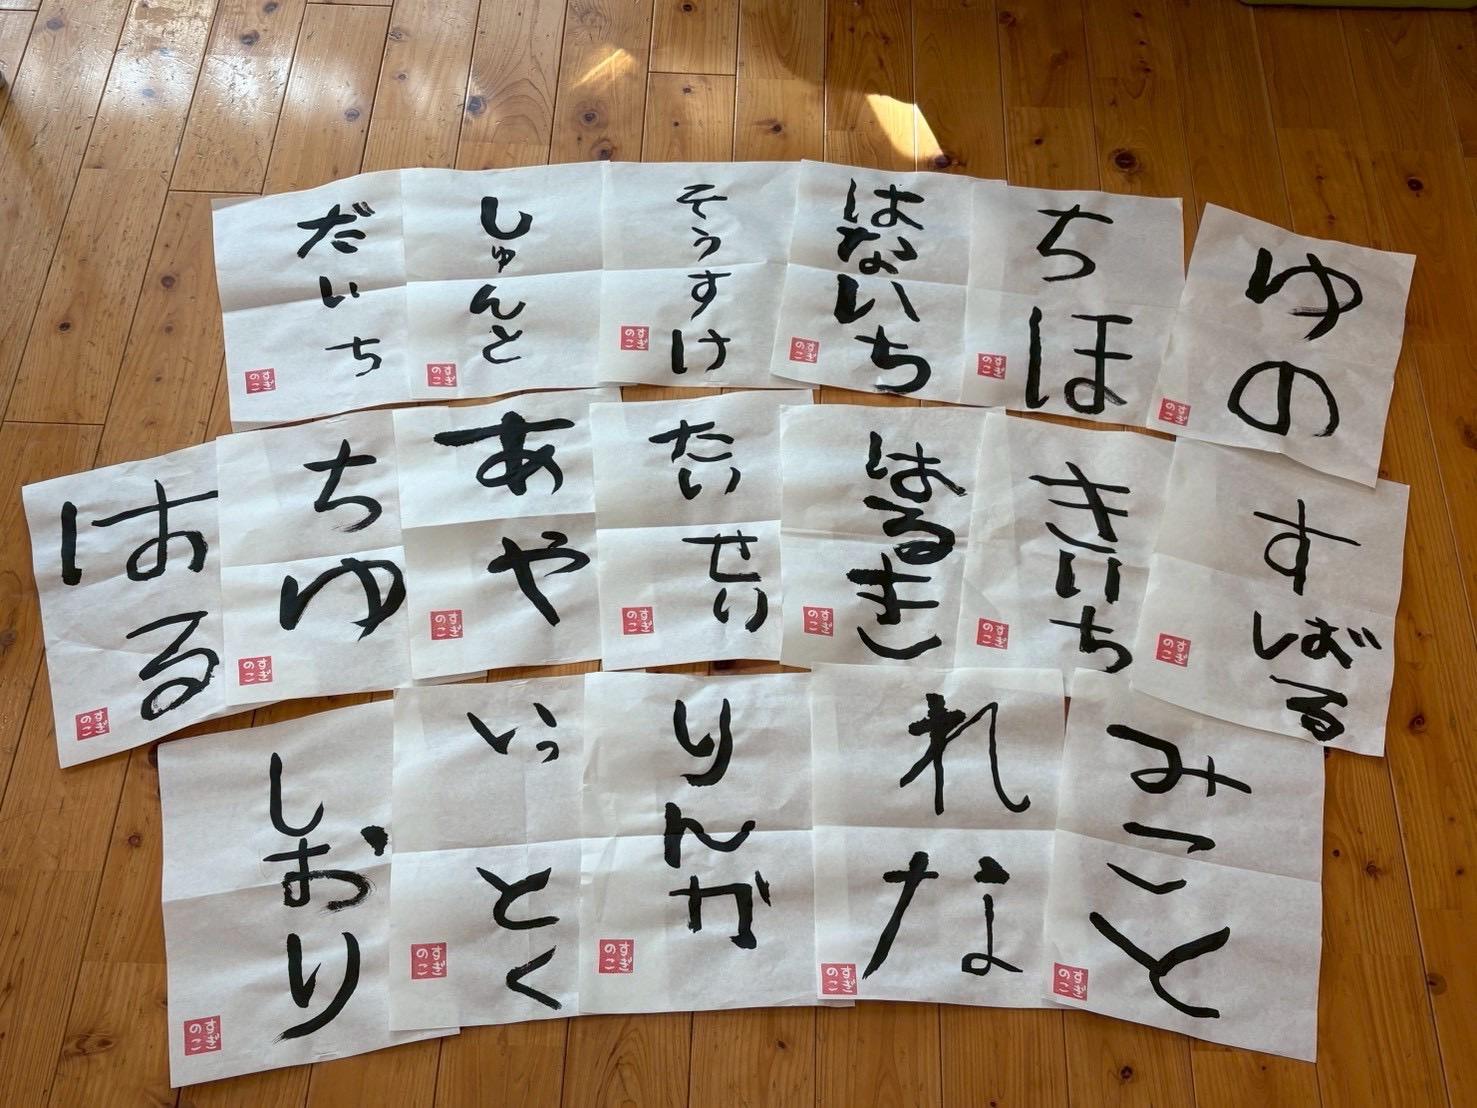 だいち
すぎのこ
しゅんと
すぎのこ
そうすけ
すぎのこ
はないち
すぎのこ
ちほ
すぎのこ
ゆの
すぎのこ
はる
すぎのこ
ちゆ
すぎのこ
あや
すぎのこ
たいせい
すぎのこ
はるき
すぎのこ
きいち
すぎのこ
すばる
すぎのこ
しおり
すぎのこ
いっとく
すぎのこ
りんが
すぎのこ
れな
すぎのこ
みこと
すぎのこ